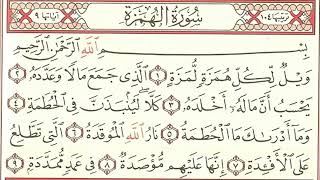 ترتيبها ١٠٤ سُورَةُ الْهُمَزَةِ آياتها ٩
بِسْمِ اللَّهِ الرَّحْمَٰنِ الرَّحِيمِ
وَيْلٌ لِّكُلِّ هُمَزَةٍ لُّمَزَةٍ ١ الَّذِى جَمَعَ مَالًا وَعَدَّدَهُ ٢
يَحْسَبُ أَنَّ مَالَهُ أَخْلَدَهُ ٣ كَلَّا لَيُنۢبَذَنَّ فِى الْحُطَمَةِ ٤
وَمَا أَدْرَىٰكَ مَا الْحُطَمَةُ ٥ نَارُ اللَّهِ الْمُوقَدَةُ ٦ الَّتِى تَطَّلِعُ
عَلَى الْأَفْـِٔدَةِ ٧ إِنَّهَا عَلَيْهِم مُّؤْصَدَةٌ ٨ فِى عَمَدٍ مُّمَدَّدَةٍ ٩